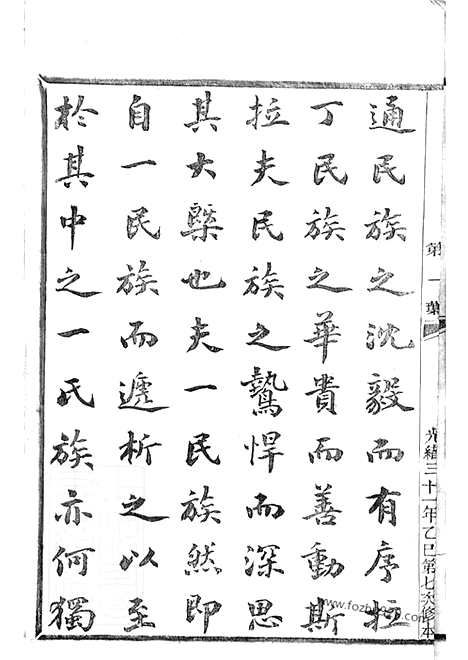 通民族之沈毅而有序拉
丁民族之華貴而善動斯
拉夫民族之鷙悍而深思
其大槩也夫一民族然即
自一民族而遞析之以至
於其中之一氏族亦何獨
第一葉
光緒三十一年乙巳第七次修本